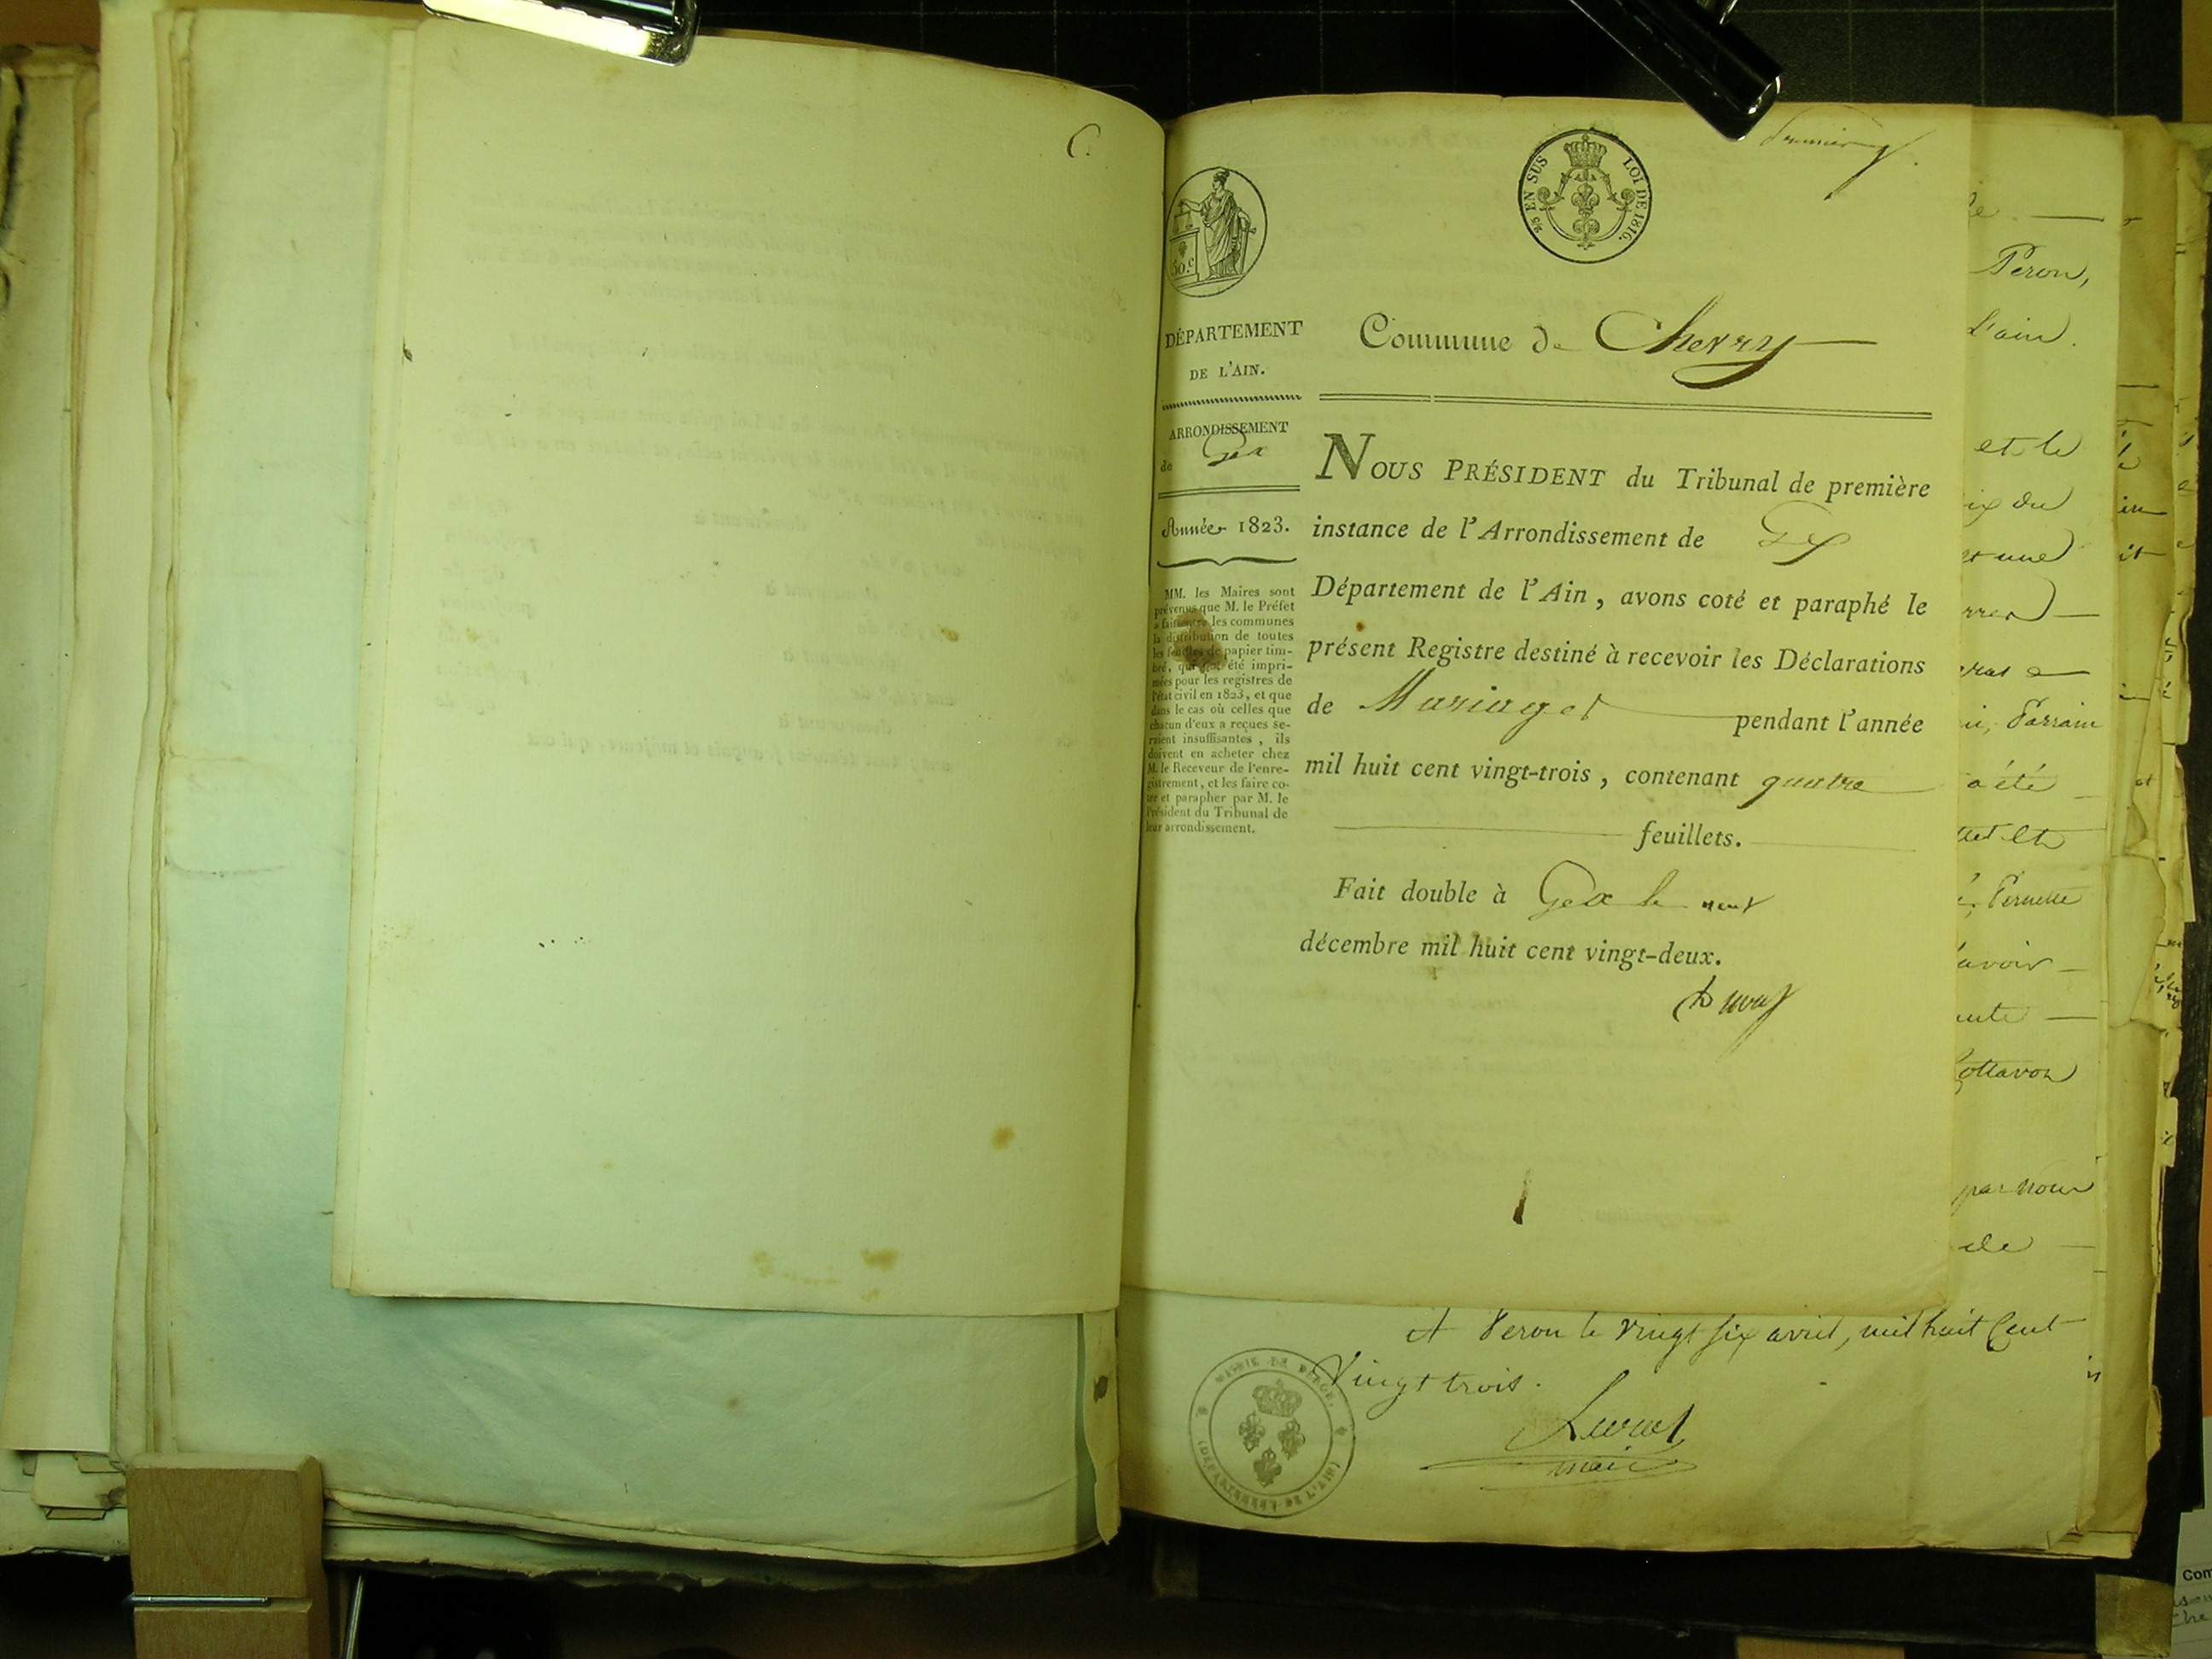 C.
premier
50.c
25 EN SUS LOI DE 1816.
DÉPARTEMENT
DE L'AIN.
ARRONDISSEMENT
de Gex
Année 1823.
MM. les Maires sont
prévenus que M. le Préfet
a fait entre les communes
la distribution de toutes
les feuilles de papier tim-
bré, qui ont été impri-
mées pour les registres de
l'état civil en 1823, et que
dans le cas où celles que
chacun d'eux a reçues se-
raient insuffisantes, ils
doivent en acheter chez
M. le Receveur de l'enre-
gistrement, et les faire co-
ter et parapher par M. le
Président du Tribunal de
leur arrondissement.
Commune de Chevry
NOUS PRÉSIDENT du Tribunal de première
instance de l'Arrondissement de Gex
Département de l'Ain, avons coté et paraphé le
présent Registre destiné à recevoir les Déclarations
de Mariages pendant l'année
mil huit cent vingt-trois, contenant quatre
feuillets.
Fait double à Gex le neuf
décembre mil huit cent vingt-deux.
Peron,
l'ain.
et le
ix du
et une
Parrain
a été
Pernette
avoir
par nous
de
A Peron le vingt six avril, mil huit Cent
Vingt trois.
maire
MAIRIE DE PERON.
(DÉPARTEMENT DE L'AIN)